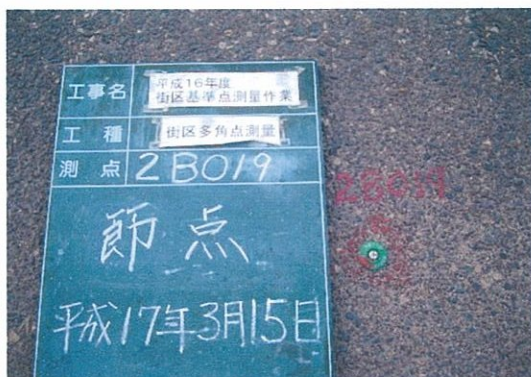 工事名 平成16年度
街区基準点測量作業
工種 街区多角点測量
測点 2B019
2B019
節点
平成17年3月15日